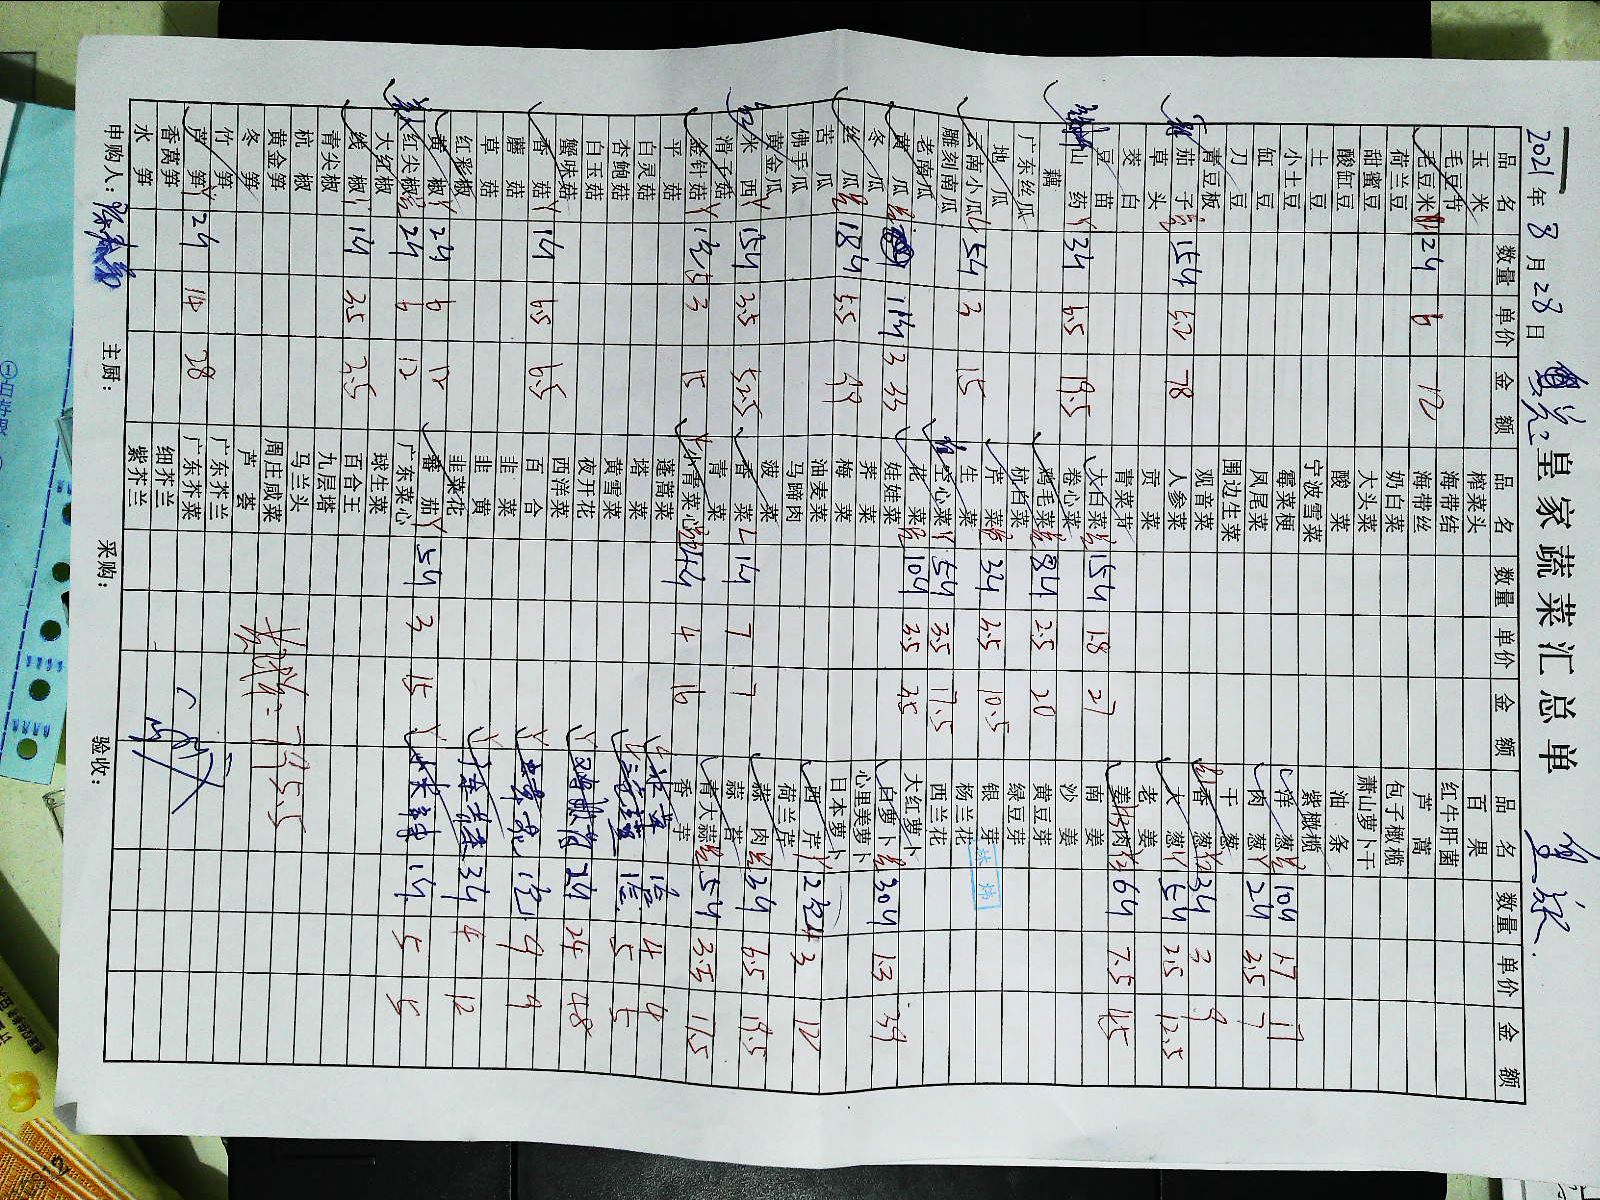 皇家蔬菜汇总单
2021年8月28日
品名 数量 单价 金额 品名 数量 单价 金额 品名 数量 单价 金额
玉米 榨菜头 百果
毛豆节 海带结 红牛肝菌
毛豆米 24 6 12 海带丝 芦蒿
荷兰豆 奶白菜 包子橄榄
甜蜜豆 大头菜 萧山萝卜干
酸缸豆 酸菜 油条
土豆 宁波雪菜 紫橄榄
小土豆 霉菜梗 洋葱 10斤 1.7 17
缸豆 凤尾菜 肉葱 2斤 3.5 7
刀豆 围边生菜 干葱
青豆板 观音菜 香葱 3斤 3 9
茄子 15斤 5.2 78 人参菜 大葱 5斤 2.5 12.5
草头 贡菜 老姜
茭白 青菜苔 姜肉 6斤 7.5 45
豆苗 大白菜 15斤 1.8 27 南姜
山药 3斤 6.5 19.5 卷心菜 沙姜
藕 鸡毛菜 8斤 2.5 20 黄豆芽
广东丝瓜 杭白菜 绿豆芽
地瓜 芹菜 3斤 3.5 10.5 银芽
云南小瓜 5斤 3 15 生菜 杨兰花
雕刻南瓜 空心菜 5斤 3.5 17.5 西兰花
老南瓜 花菜 10斤 3.5 35 大红萝卜
黄瓜 11斤 3 33 娃娃菜 白萝卜 30斤 1.3 39
冬瓜 荠菜 心里美萝卜
丝瓜 18斤 5.5 99 梅菜 日本萝卜
苦瓜 油麦菜 西芹 3 12
佛手瓜 马蹄肉 荷兰芹
黄金瓜 菠菜 蒜肉 3斤 6.5 19.5
米西 15斤 3.5 52.5 香菜 1斤 7 7 蒜苔
滑子菇 青菜 青大蒜 5斤 3.5 17.5
金针菇 3 15 小青菜心 4斤 4 16 香芋
平菇 蓬蒿菜 4 4
白灵菇 塔菜 5 5
杏鲍菇 黄雪菜
白玉菇 夜开花 2斤 24 48
蟹味菇 西洋菜
香菇 1斤 6.5 6.5 百合 9 9
蘑菇 韭菜
草菇 韭黄 3斤 4 12
红彩椒 韭菜花
黄椒 2斤 6 12 番茄 5斤 3 15 1斤 5 5
红尖椒 2斤 6 12 广东菜心
大红椒 球生菜
线椒 1斤 3.5 3.5 百合王
青尖椒 九层塔
杭椒 马兰头
黄金笋 周庄咸菜
冬笋 芦荟
竹笋 广东芥兰
芦笋 2斤 14 28 广东芥菜
香莴笋 细芥兰
水笋 紫芥兰
995.5
申购人： 主厨： 采购： 验收：